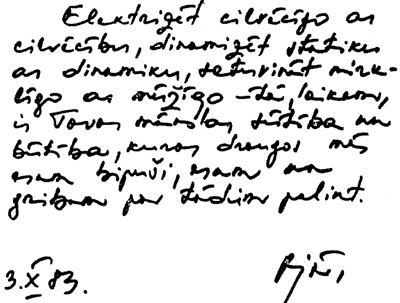 Elektrizēt cilvēcīgo ar
cilvēcību, dinamizēt statiku
ar dinamiku, saturināt mirk-
līgo ar mūžīgo – tā, laikam,
ir Tavas mākslas sūtība un
būtība, kuras draugos mēs
esam bijuši, esam un
gribam par tādiem palikt.
3.X 83.